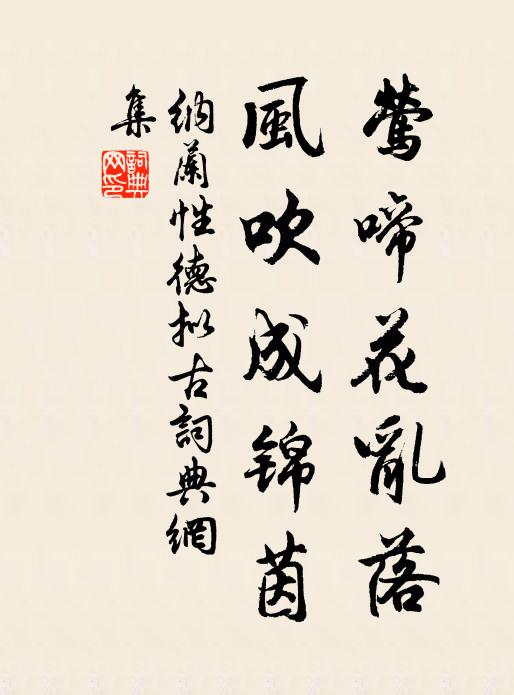 鶯啼花亂落
風吹成錦茵
納蘭性德拟古詞典網
集
詞典网印